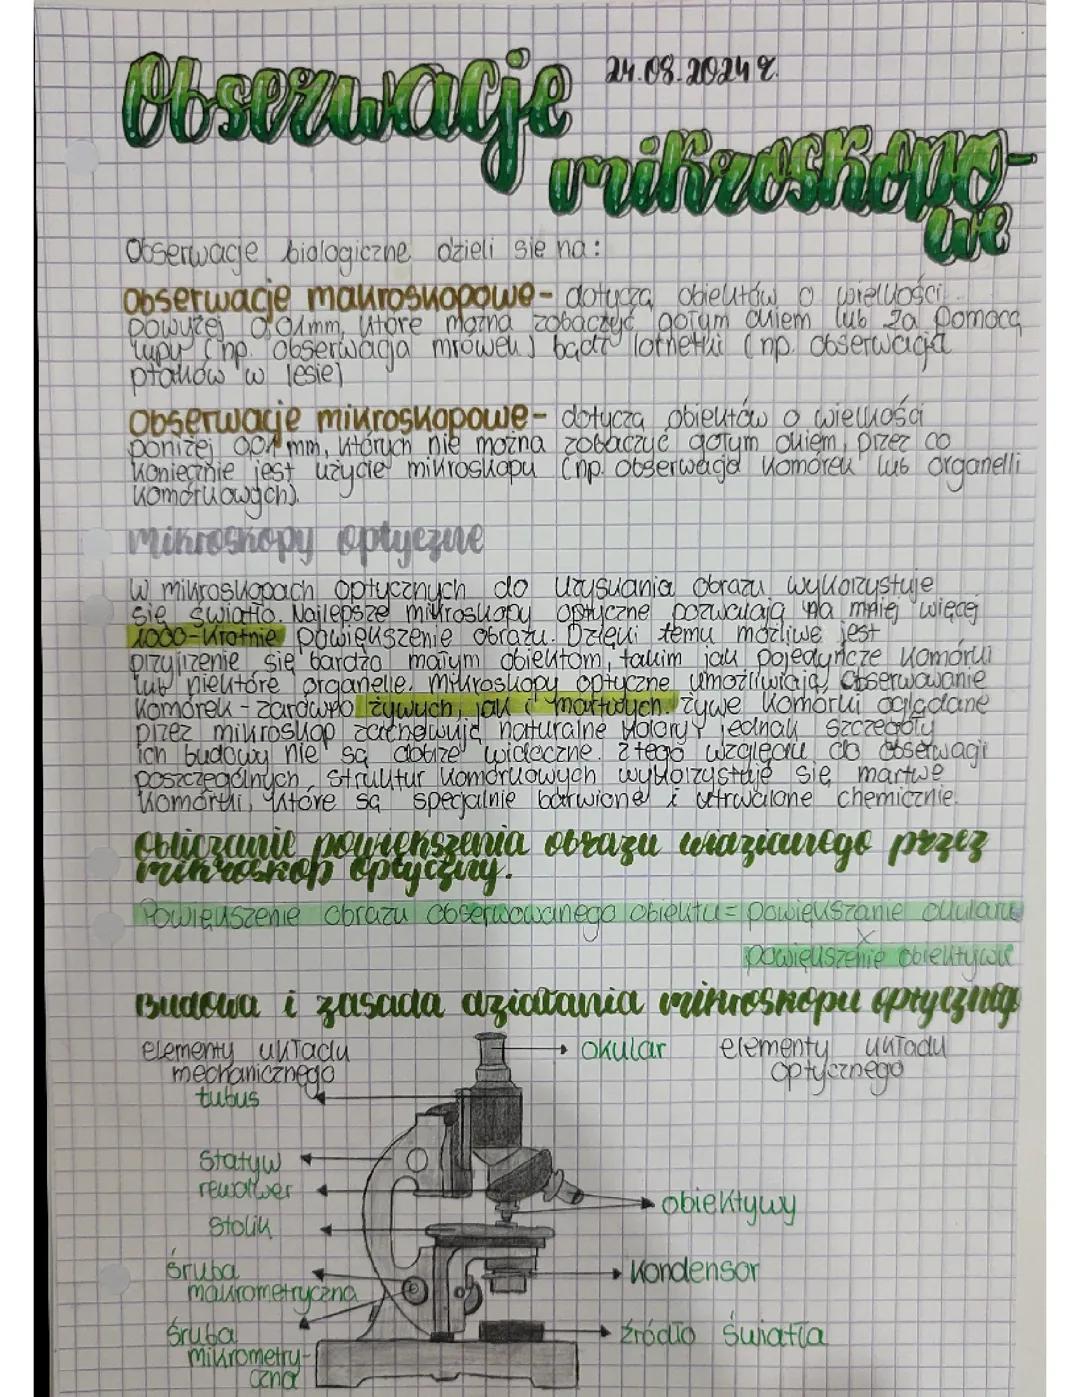 Obserwacje
24.08.2024 r.
mikroskopo-
we
Obserwacje biologiczne dzieli się na:
obserwacje makroskopowe - dotyczą obiektów o wielkości
powyżej 0,01mm, które można zobaczyć gołym okiem lub za pomocą
lupy (np. obserwacja mrówek) bądź lornetki (np. obserwacja
ptaków w lesie)
obserwacje mikroskopowe - dotyczą obiektów o wielkości
poniżej 0,01 mm, których nie można zobaczyć gołym okiem, przez co
konieczne jest użycie mikroskopu (np. obserwacja komórek lub organelli
komórkowych).
mikroskopy optyczne
W mikroskopach optycznych do uzyskania obrazu wykorzystuje
się światło. Najlepsze mikroskopy optyczne pozwalają na mniej więcej
1000-krotnie powiększenie obrazu. Dzięki temu możliwe jest
przyjrzenie się bardzo małym obiektom, takim jak pojedyncze komórki
lub niektóre organelle. Mikroskopy optyczne umożliwiają obserwowanie
komórek - zarówno żywych, jak i martwych. Żywe komórki oglądane
przez mikroskop zachowują naturalne kolory jednak szczegóły
ich budowy nie są dobrze widoczne. Z tego względu do obserwacji
poszczególnych struktur komórkowych wykorzystuje się martwe
komórki, które są specjalnie barwione i utrwalone chemicznie.
Obliczanie powiększenia obrazu widzianego przez
mikroskop optyczny.
Powiększenie obrazu obserwowanego obiektu = powiększanie okularu
x
powiększenie obiektywu
Budowa i zasada działania mikroskopu optycznego
elementy układu
mechanicznego
okular
elementy układu
optycznego
tubus
statyw
rewolwer
obiektywy
stolik
śruba
makrometryczna
kondensor
śruba
mikrometry-
czna
źródło światła